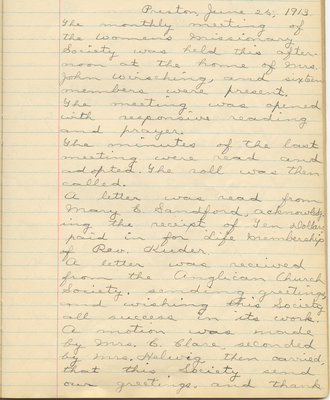 Preston, June 26, 1913.
The monthly meeting of
the Womens Missionary
Society was held this after-
noon at the home of Mrs.
John Wirsching, and sixteen
members were present.
The meeting was opened
with responsive reading
and prayer.
The minutes of the last
meeting were read and
adopted. The roll was then
called.
A letter was read from
Mary E. Sandford, acknowledg-
ing the receipt of Ten Dollars
paid in for Life Membership
of Rev. Kuder.
A letter was received
from the Anglican Church
Society. sending greetings
and wishing this Society
all success in its work.
A motion was made
by Mrs. C. Clare, seconded
by Mrs. Helwig, then carried,
that this Society send
our greetings. and thank